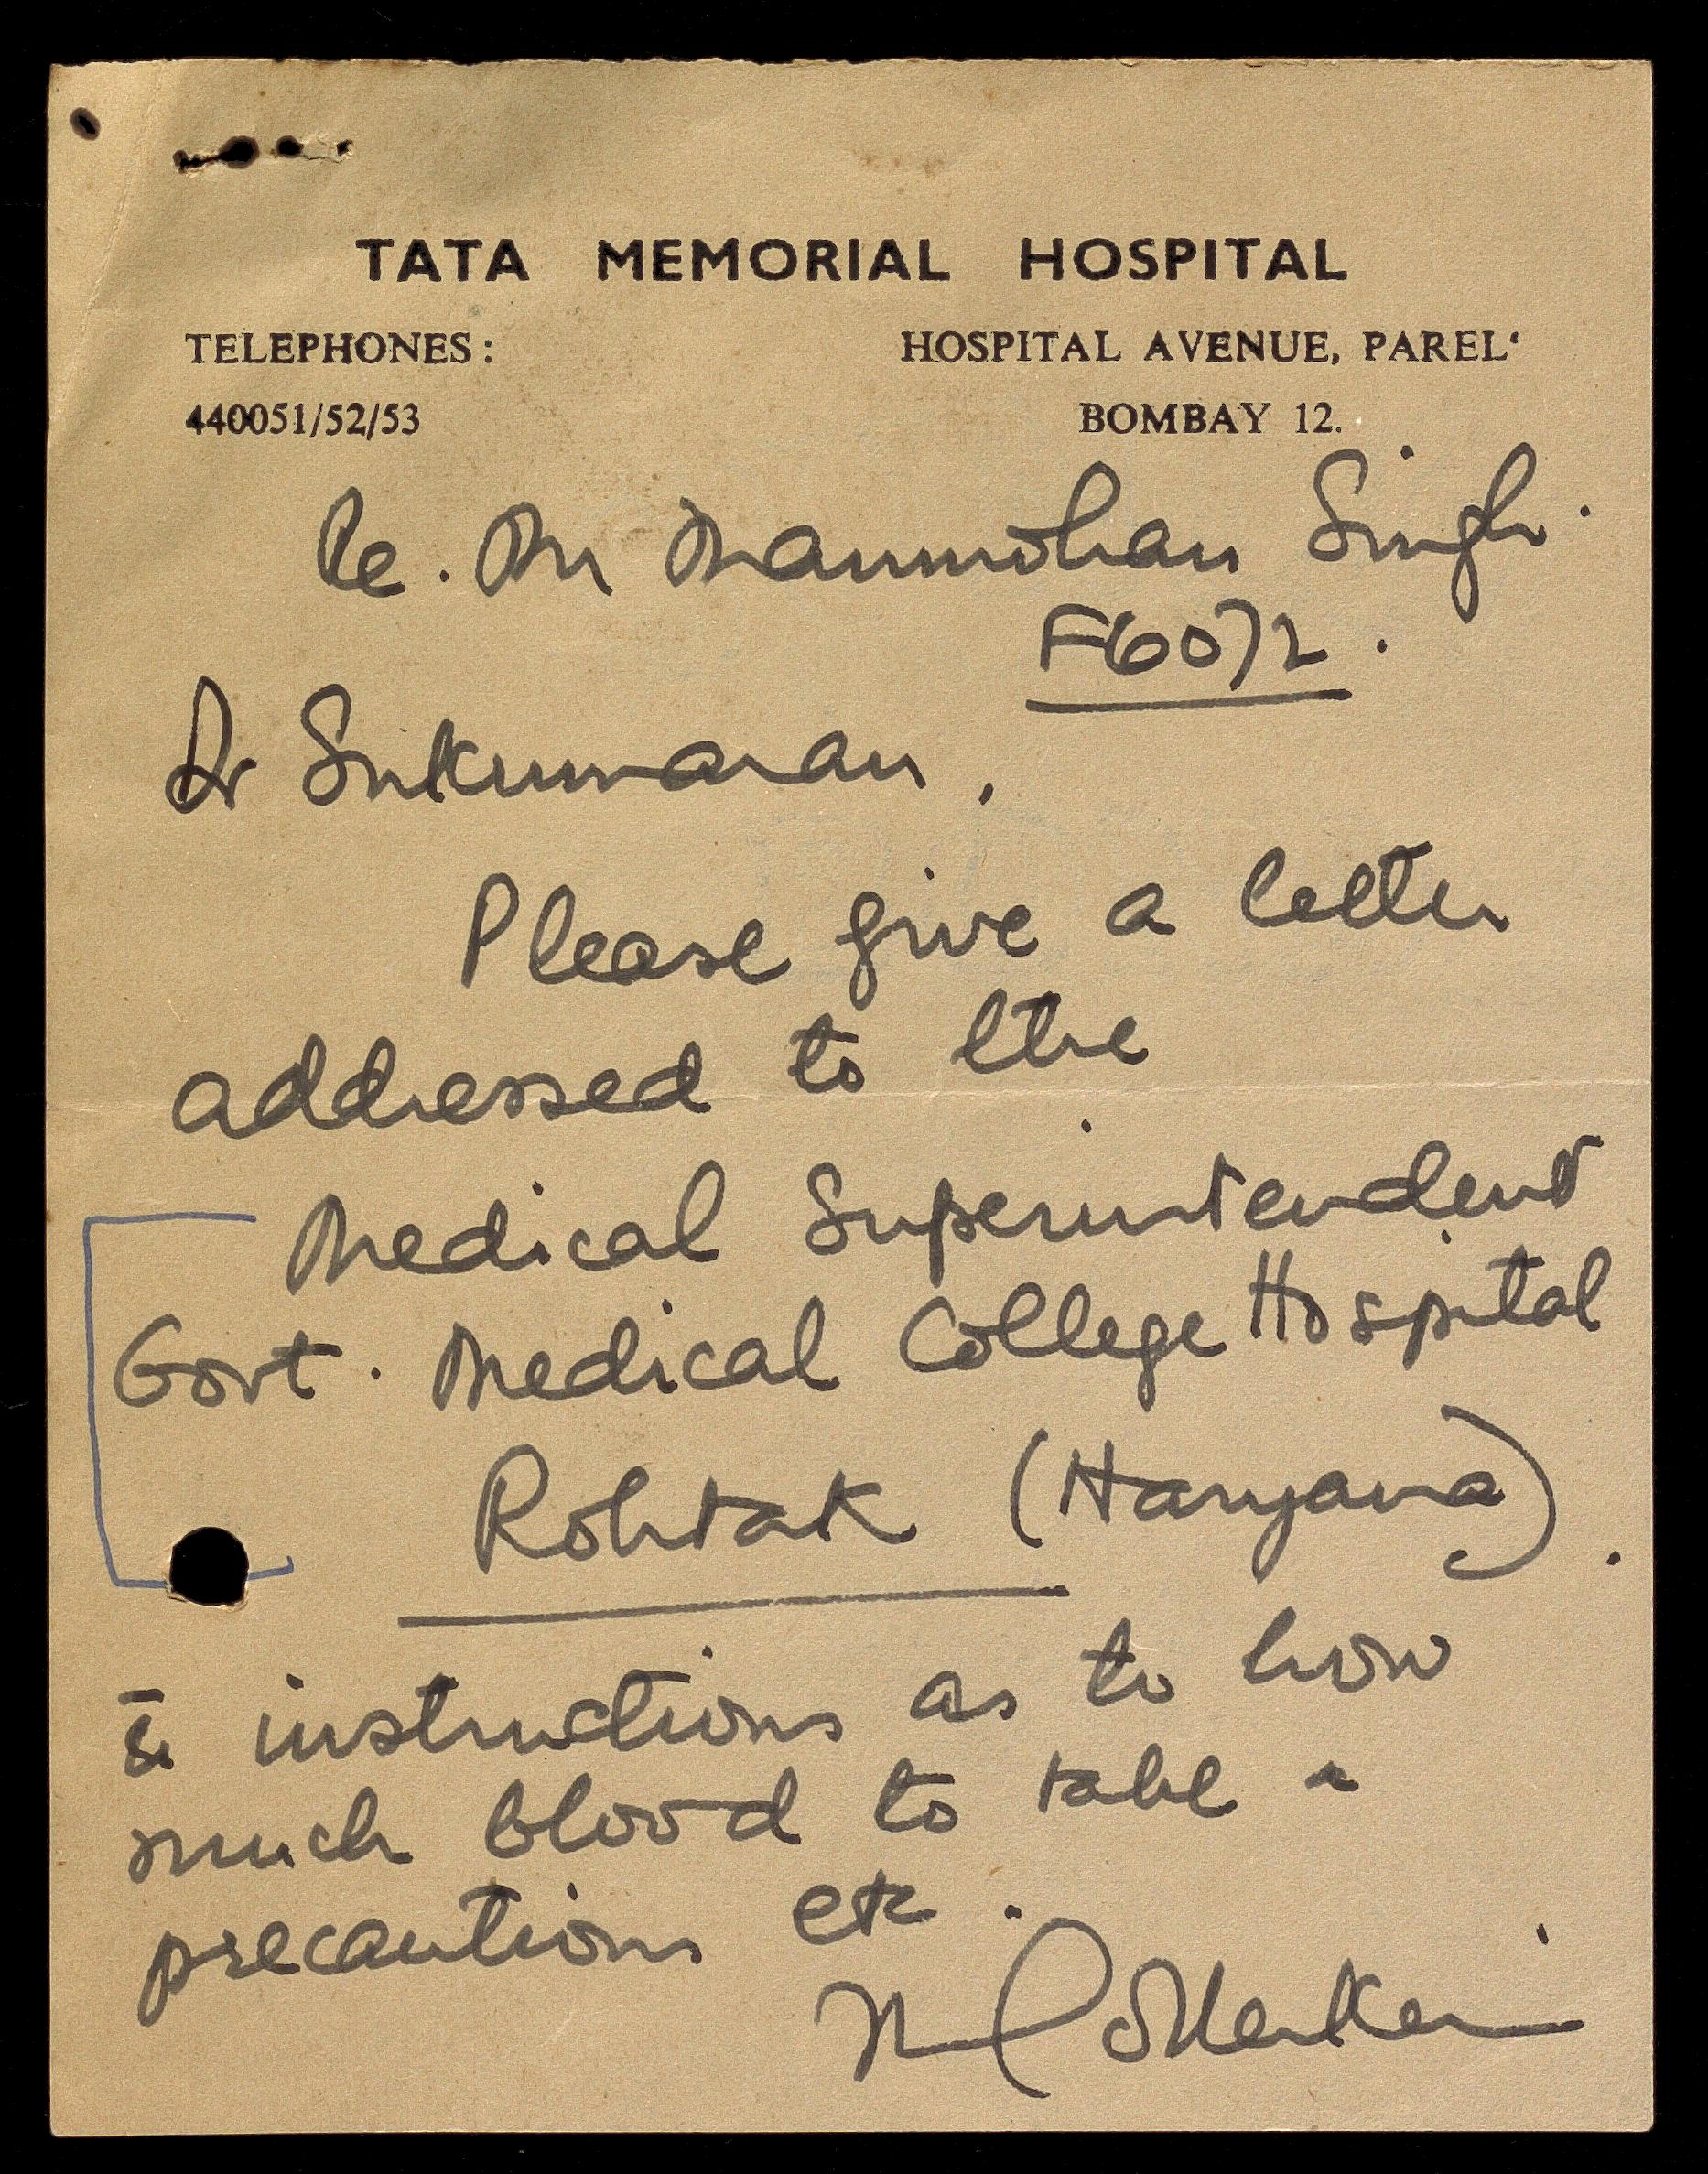 TATA MEMORIAL HOSPITAL
TELEPHONES: HOSPITAL AVENUE, PAREL
440051/52/53 BOMBAY 12.
Re. Mr Manmohan Singh.
F6072.
Dr Sukumaran,
Please give a letter
addressed to the
Medical Superintendent
Govt. Medical College Hospital
Rohtak (Haryana).
c̄ instructions as to how
much blood to take
precautions etc.